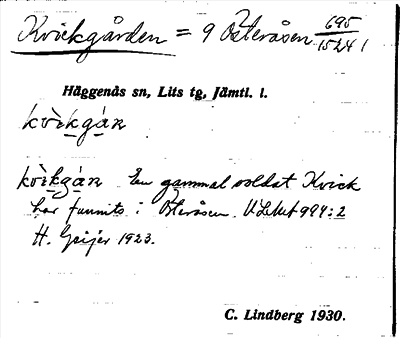 Kvickgården = 9 Österåsen 695/1524 1
Häggenås sn, Lits tg, Jämtl. l.
kvìkgàɳ
kvìkgàɳ En gammal soldat Kvick
har funnits i Österåsen. ULMA 994:2
H. Geijer 1923.
C. Lindberg 1930.